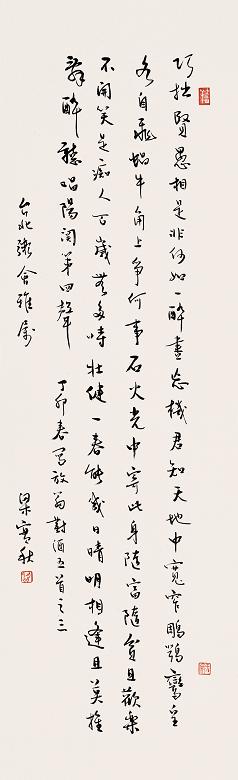 巧拙賢愚相是非何如一醉盡忘機君知天地中寬窄鵰鶚鸞皇
各自飛蝸牛角上爭何事石火光中寄此身隨富隨貧且歡樂
不開笑是癡人百歲無多時壯健一春能幾日晴明相逢且莫推
辭醉聽唱陽關第四聲
丁卯春寫放翁對酒五首之三
台北粥會雅屬
梁實秋